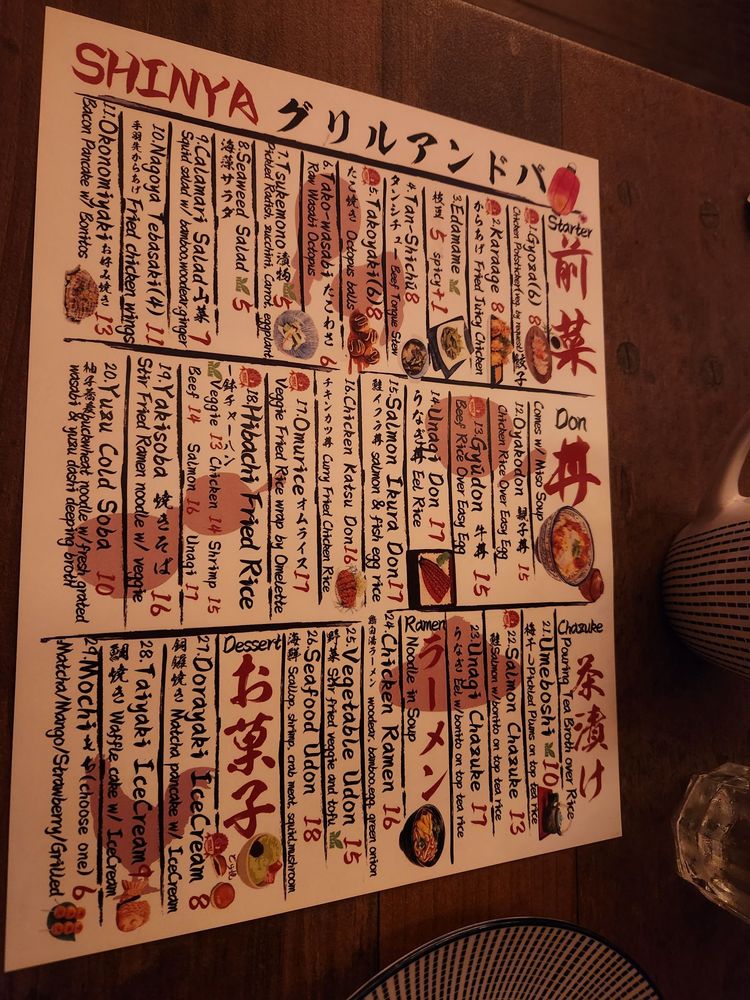 SHINYA グリルアンドバ
Starter 前菜
1.Gyoza(6) 8
2.Karaage 8
からあげ Fried Juicy Chicken
3.Edamame
枝豆 5 spicy+1
4.Tan-Shichu 8
タンシチュ Beef Tongue Stew
5.Takoyaki(6) 8
たこ焼き Octopus balls
6.Tako-wasabi たこわさ 6
Raw Wasabi Octopus
7.Tsukemono 漬物 5
Pickled Radish, zucchini, Carrot, eggplant
8.Seaweed Salad 5
海藻サラダ
9.Calamari Salad 7
Squid salad w/ bamboo,woodear,ginger
10.Nagoya Tebasaki(4) 11
手羽先からあげ Fried chicken wings
11.Okonomiyaki お好み焼き 13
Bacon Pancake w/ Bonitos
Don 丼
Comes w/ Miso Soup
12.Oyakodon 親子丼 15
Chicken Rice Over Easy Egg
13.Gyūdon 牛丼 15
Beef Rice Over Easy Egg
14.Unagi Don 17
うなぎ丼 Eel Rice
15.Salmon Ikura Don 17
鮭いくら丼 salmon & fish egg rice
16.Chicken Katsu Don 16
チキンカツ丼 Curry Fried Chicken Rice
17.Omurice オムライス 17
Veggie Fried Rice wrap by Omelette
18.Hibachi Fried Rice
Veggie 13 Chicken 14 Shrimp 15
Beef 14 Salmon 16 Unagi 17
19.Yakisoba 焼きそば 16
Stir Fried Ramen noodle w/ veggie
20.Yuzu Cold Soba 10
柚子蕎麦buckwheat noodle w/fresh grated
wasabi & yuzu dashi deeping broth
Chazuke 茶漬け
Pouring Tea Broth over Rice
21.Umeboshi 10
Pickled Plums on top tea rice
22.Salmon Chazuke 13
鮭Salmon w/bonito on top tea rice
23.Unagi Chazuke 17
うなぎ Eel w/bonito on top tea rice
Ramen ラーメン
Noodle in Soup
24.Chicken Ramen 16
鶏白湯ラーメン woodear, bamboo,egg, green onion
25.Vegetable Udon 15
野菜 Stir fried veggie and tofu
26.Seafood Udon 18
海鮮 Scallop, shrimp, crab meat, squid,mushroom
Dessert お菓子
27.Dorayaki IceCream 8
銅鑼焼き Matcha pancake w/ IceCream
28.Taiyaki IceCream 9
鯛焼き Waffle cake w/ IceCream
29.Mochi もち(choose one) 6
Matcha/Mango/Strawberry/Grilled